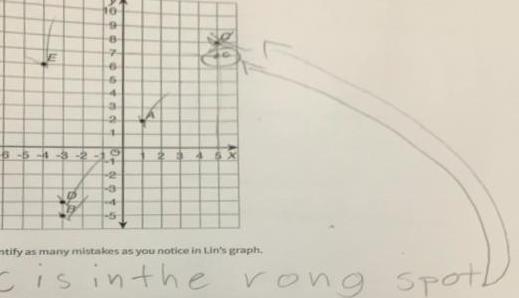 y
10
9
8
7
6
5
4
3
2
1
-6 -5 -4 -3 -2 -1 O 1 2 3 4 5 x
-1
-2
-3
-4
-5
E
C
A
D
B
ntify as many mistakes as you notice in Lin's graph.
c is in the rong spot